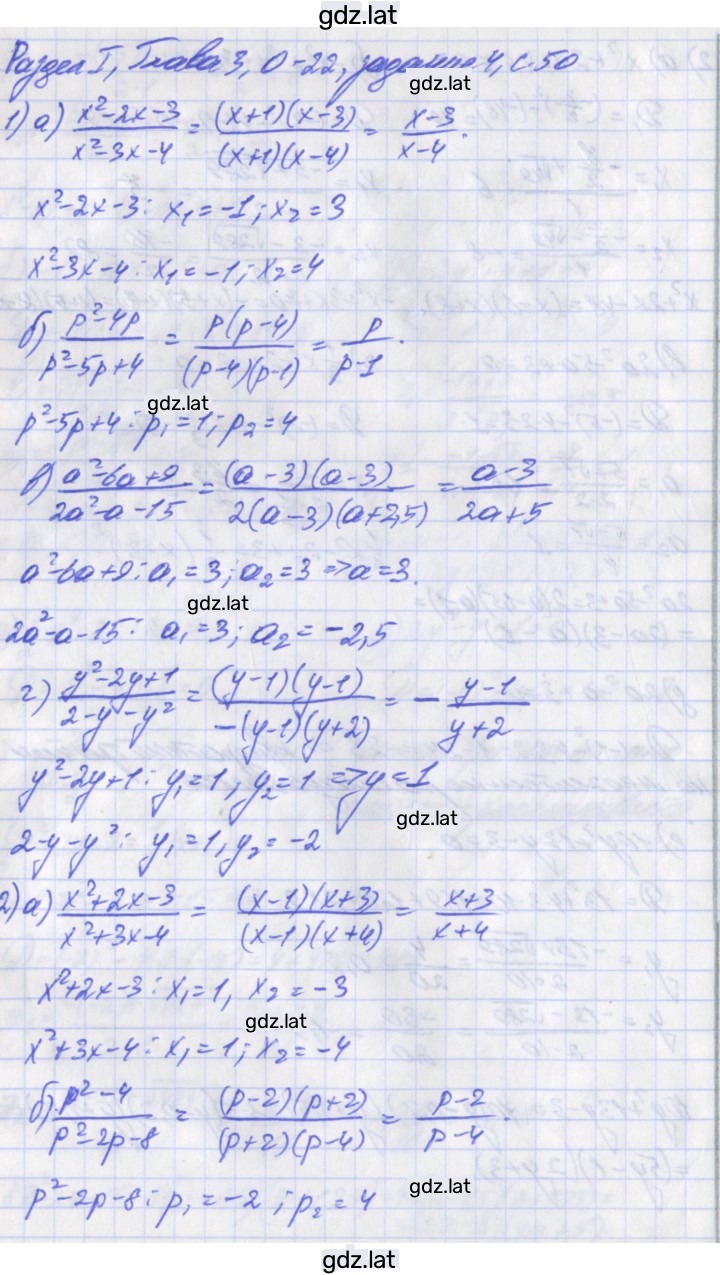 gdz.lat
Раздел I, Глава 3, О-22, задание 4, с. 50
gdz.lat
1) а) (x²-2x-3)/(x²-3x-4) = ((x+1)(x-3))/((x+1)(x-4)) = (x-3)/(x-4).
x²-2x-3: x₁=-1; x₂=3
gdz.lat
x²-3x-4: x₁=-1; x₂=4
б) (p²-4p)/(p²-5p+4) = (p(p-4))/((p-4)(p-1)) = p/(p-1).
gdz.lat
p²-5p+4: p₁=1; p₂=4
в) (a²-6a+9)/(2a²-a-15) = ((a-3)(a-3))/(2(a-3)(a+2,5)) = (a-3)/(2a+5)
a²-6a+9: a₁=3; a₂=3 => a=3.
gdz.lat
2a²-a-15: a₁=3; a₂=-2,5
г) (y²-2y+1)/(2-y-y²) = ((y-1)(y-1))/(-(y-1)(y+2)) = - (y-1)/(y+2)
y²-2y+1: y₁=1, y₂=1 => y=1
gdz.lat
2-y-y²: y₁=1, y₂=-2
2) а) (x²+2x-3)/(x²+3x-4) = ((x-1)(x+3))/((x-1)(x+4)) = (x+3)/(x+4)
x²+2x-3: x₁=1, x₂=-3
gdz.lat
x²+3x-4: x₁=1; x₂=-4
б) (p²-4)/(p²-2p-8) = ((p-2)(p+2))/((p+2)(p-4)) = (p-2)/(p-4).
gdz.lat
p²-2p-8: p₁=-2; p₂=4
gdz.lat